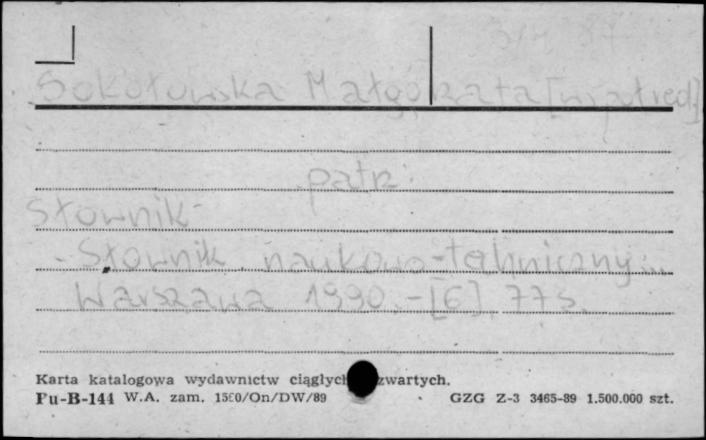 Sokołowska Małgorzata [współred.]
patrz:
Słownik
- Słownik naukowo-techniczny...
Warszawa 1990. - [6], 77 s.
Karta katalogowa wydawnictw ciągłych zwartych.
Pu-B-144 W.A. zam. 1580/On/DW/89 GZG Z-3 3465-89 1.500.000 szt.